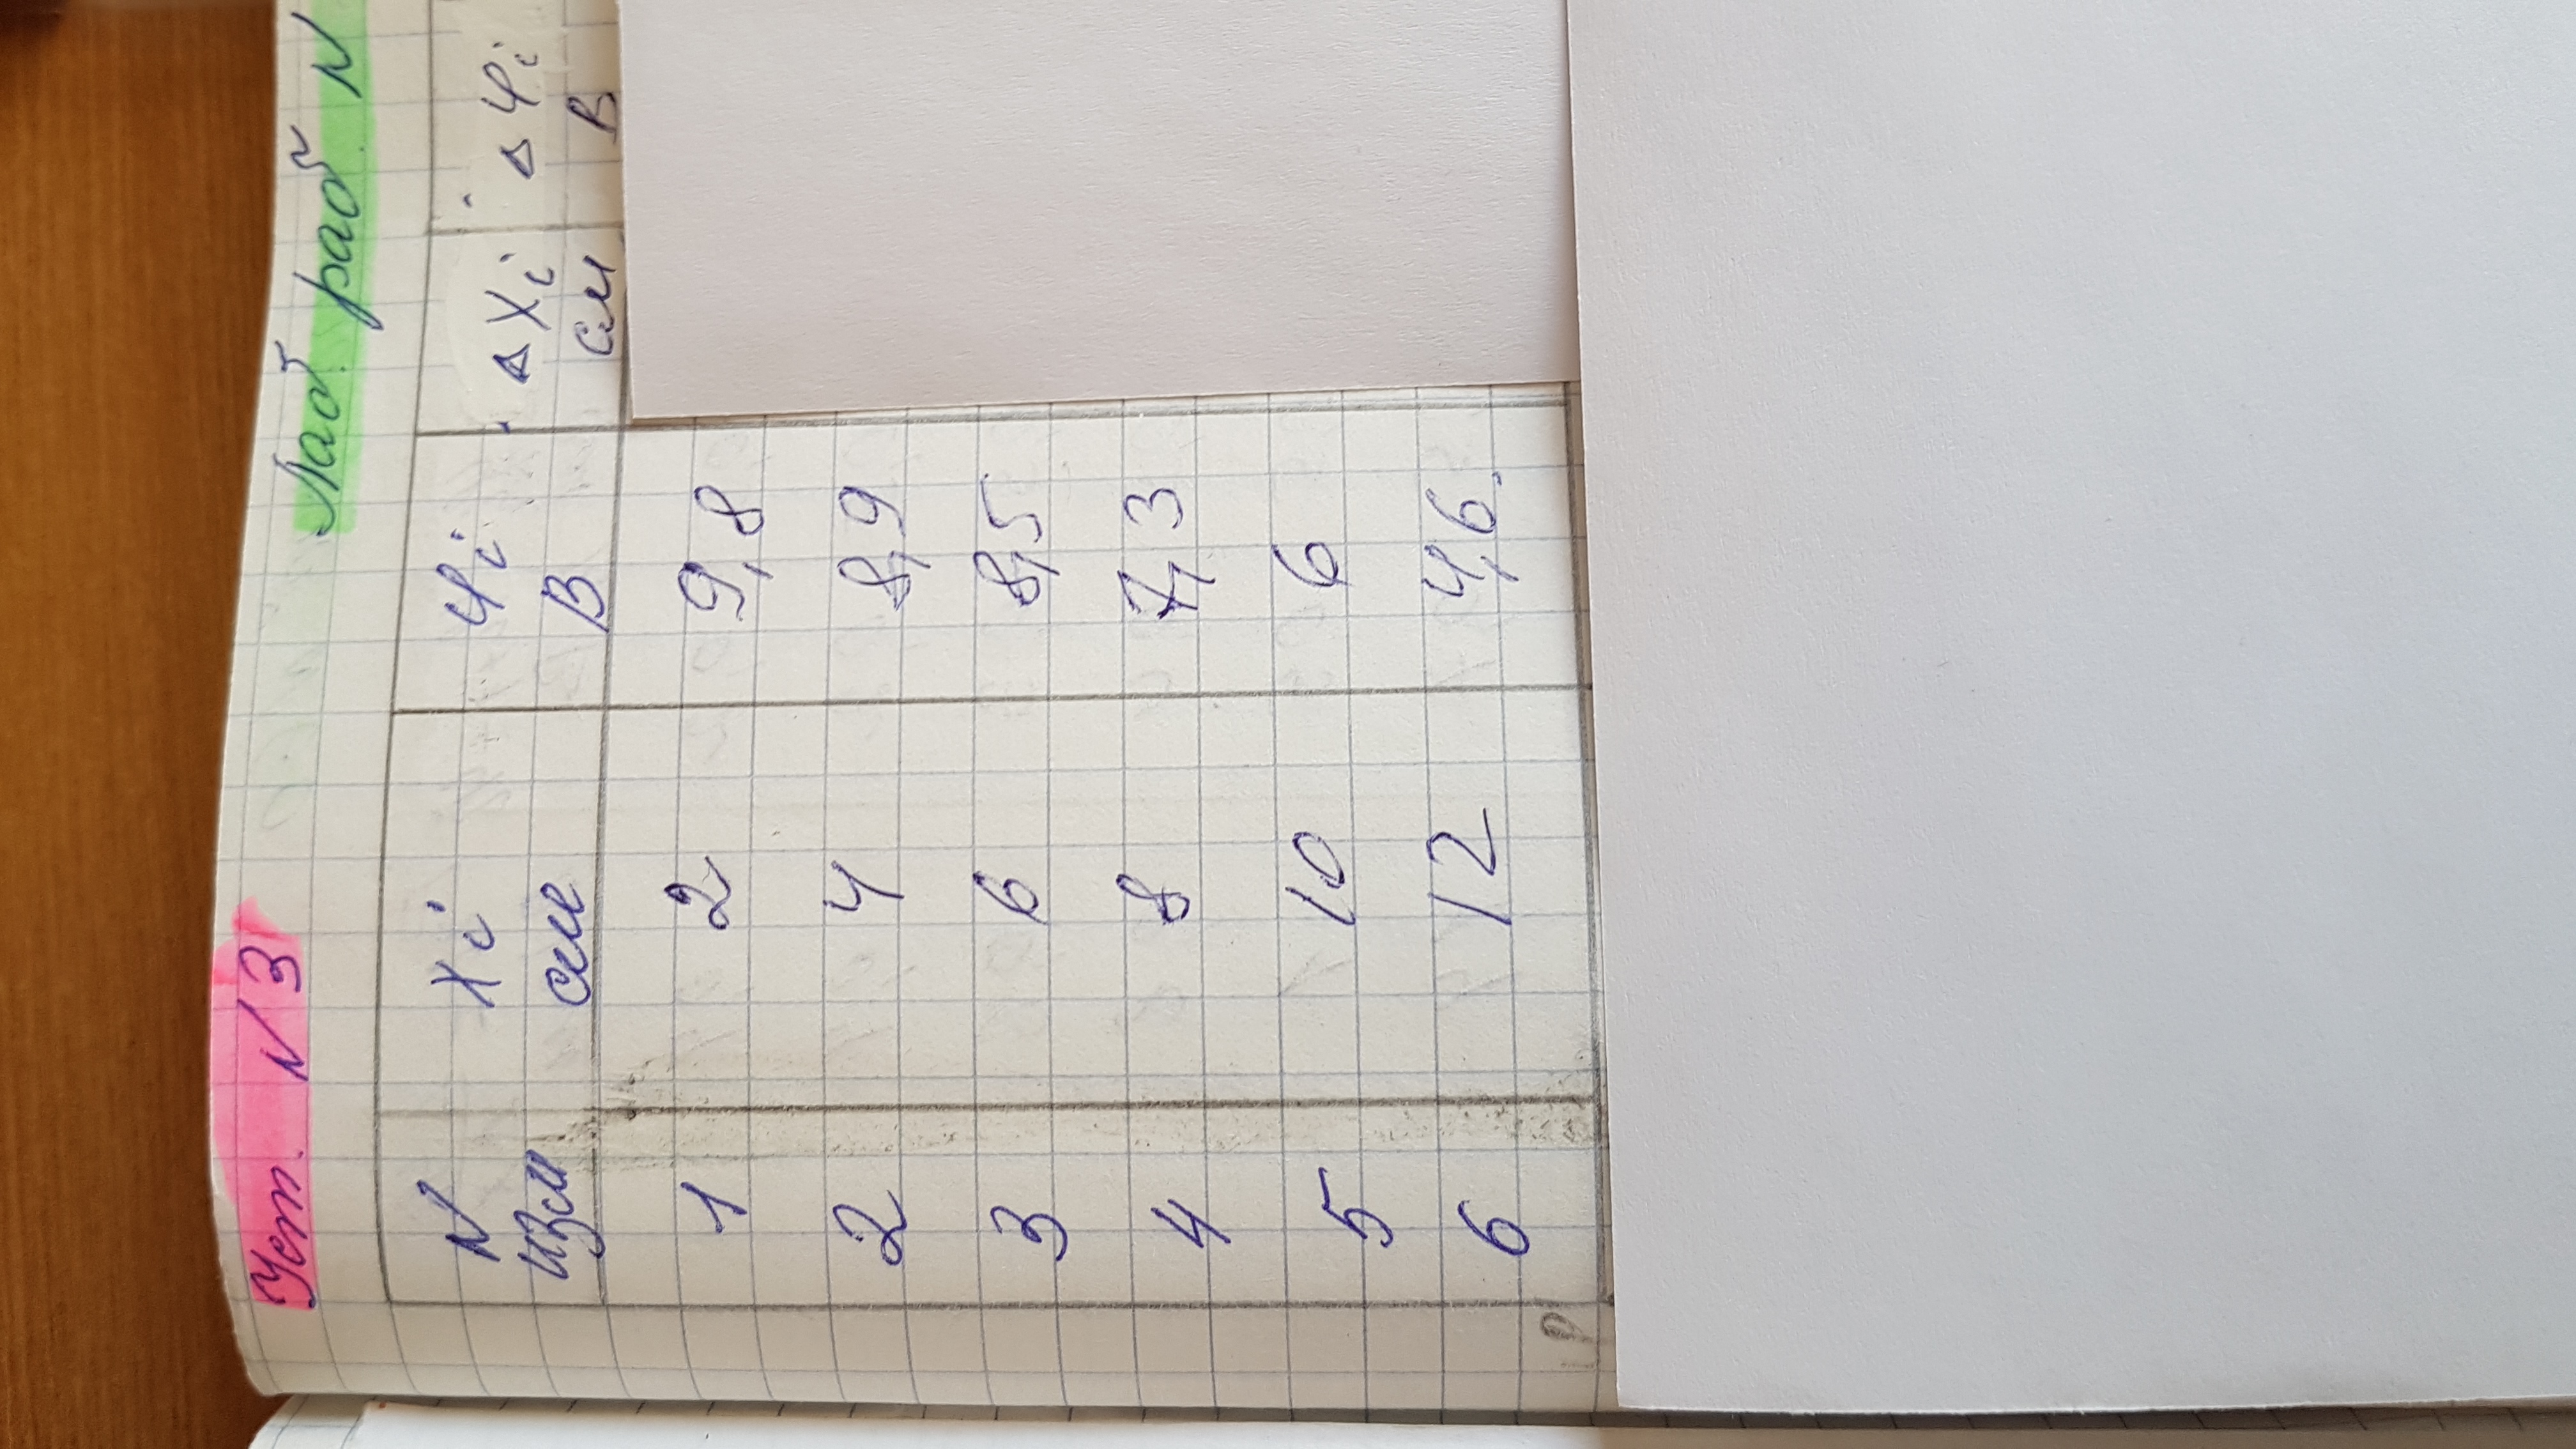 Уст. N 3
Лаб. раб. N
N изм | Xi см | φi В | ΔXi см | Δφi В
1 | 2 | 9,8
2 | 4 | 8,9
3 | 6 | 8,5
4 | 8 | 7,3
5 | 10 | 6
6 | 12 | 4,6.